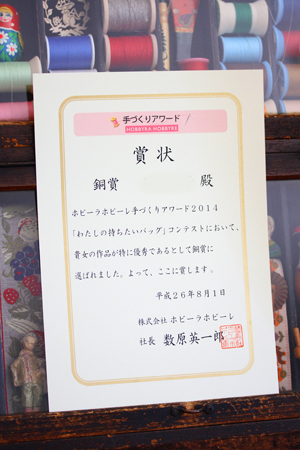 手づくりアワード
HOBBYRA HOBBYRE
賞状
銅賞 殿
ホビーラホビーレ手づくりアワード2014
「わたしの持ちたいバッグ」コンテストにおいて、
貴女の作品が特に優秀であるとして銅賞に
選ばれました。よって、ここに賞します。
平成26年8月1日
株式会社 ホビーラホビーレ
社長 数原英一郎